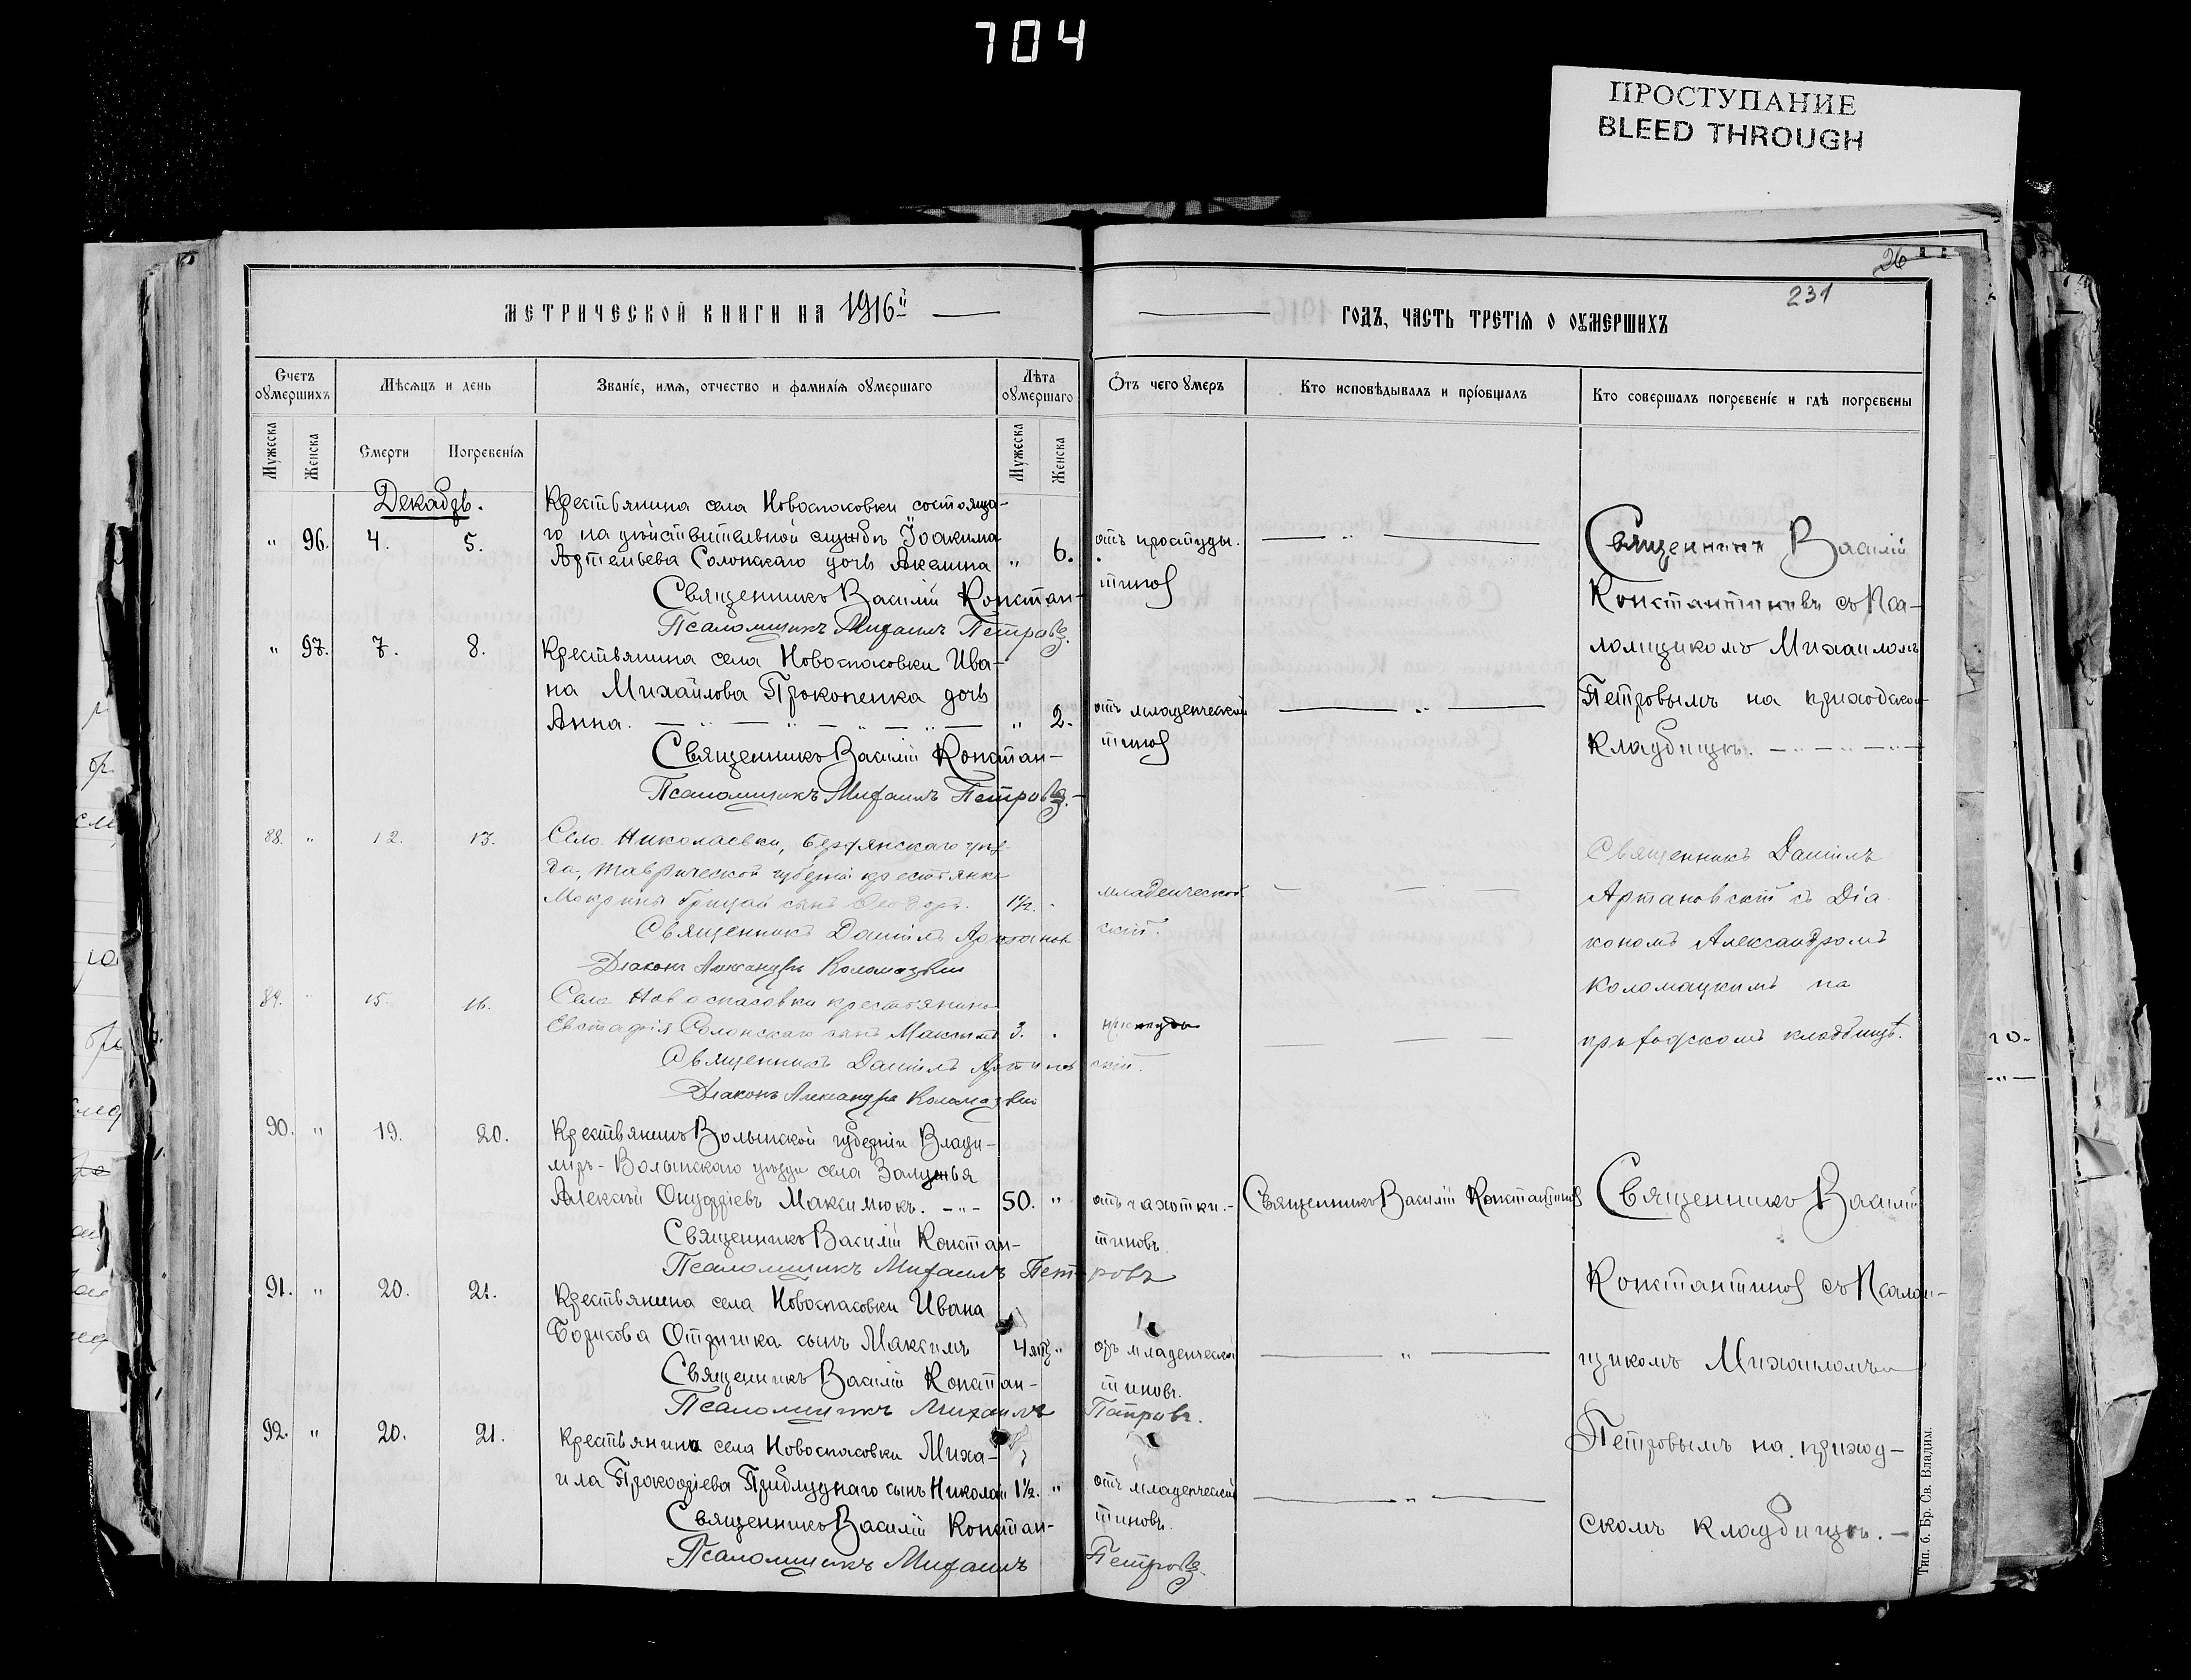 704
ПРОСТУПАНИЕ
BLEED THROUGH
26
231
МЕТРИЧЕСКОЙ КНИГИ НА 1916й
ГОДЪ, ЧАСТЬ ТРЕТІЯ О ОУМЕРШИХЪ
Счетъ оумершихъ
Мѣсяцъ и день
Званіе, имя, отчество и фамилія оумершаго
Лѣта оумершаго
Отъ чего умеръ
Кто исповѣдывалъ и пріобщалъ
Кто совершалъ погребеніе и гдѣ погребены
Мужеска
Женска
Смерти
Погребенія
Мужеска
Женска
Декабрь.
Крестьянина села Новоспасовки состояща-
" 96. 4. 5. го на дѣйствительной службѣ Іоакима
Артемьева Солонскаго дочь Акилина " 6. отъ простуды.
Священникъ Василій Констан-
тиновъ
Псаломщикъ Михаилъ Петровъ.
Священникъ Василій
Константиновъ съ Пса-
ломщикомъ Михаиломъ
Петровымъ на приходском
кладбищѣ.
" 97. 7. 8. Крестьянина села Новоспасовки Ива-
на Михайлова Прокопенка дочь
Анна. " 2. отъ младенческой
Священникъ Василій Констан-
тиновъ
Псаломщикъ Михаилъ Петровъ.
88. " 12. 13. Села Николаевки, Бердянскаго уѣз-
да, Таврической губерніи крестьянки
Мокрины Грицай сынъ Ѳеодоръ. 1½. младенческой
Священникъ Даніилъ Артановскій.
Діаконъ Александръ Коломацкій
Священникъ Даніилъ
Артановскій съ Діа
кономъ Александромъ
Коломацкимъ на
приходскомъ кладбищѣ.
89. " 15. 16. Села Новоспасовки крестьянина
Евстафія Солонскаго сынъ Максимъ 3. простуды
Священникъ Даніилъ Артановскій.
Діаконъ Александръ Коломацкій
90. " 19. 20. Крестьянинъ Волынской губерніи Влади-
міръ-Волынскаго уѣзда села Залужья
Алексѣй Онуфріевъ Максимюкъ. 50. " отъ чахотки. Священникъ Василій Константиновъ
Священникъ Василій Констан-
тиновъ.
Псаломщикъ Михаилъ Петровъ
Священникъ Василій
Константиновъ съ Псалом-
щикомъ Михаиломъ
Петровымъ на приход-
скомъ кладбищѣ.
91. " 20. 21. Крестьянина села Новоспасовки Ивана
Борисова сынъ Максимъ 4 " отъ младенческой
Священникъ Василій Констан-
тиновъ.
Псаломщикъ Михаилъ Петровъ.
92. " 20. 21. Крестьянина села Новоспасовки Миха-
ила Прокофіева Приблуднаго сынъ Николай 1½. " отъ младенческой
Священникъ Василій Констан-
тиновъ.
Псаломщикъ Михаилъ Петровъ.
Тип. б. Бр. Св. Владим.